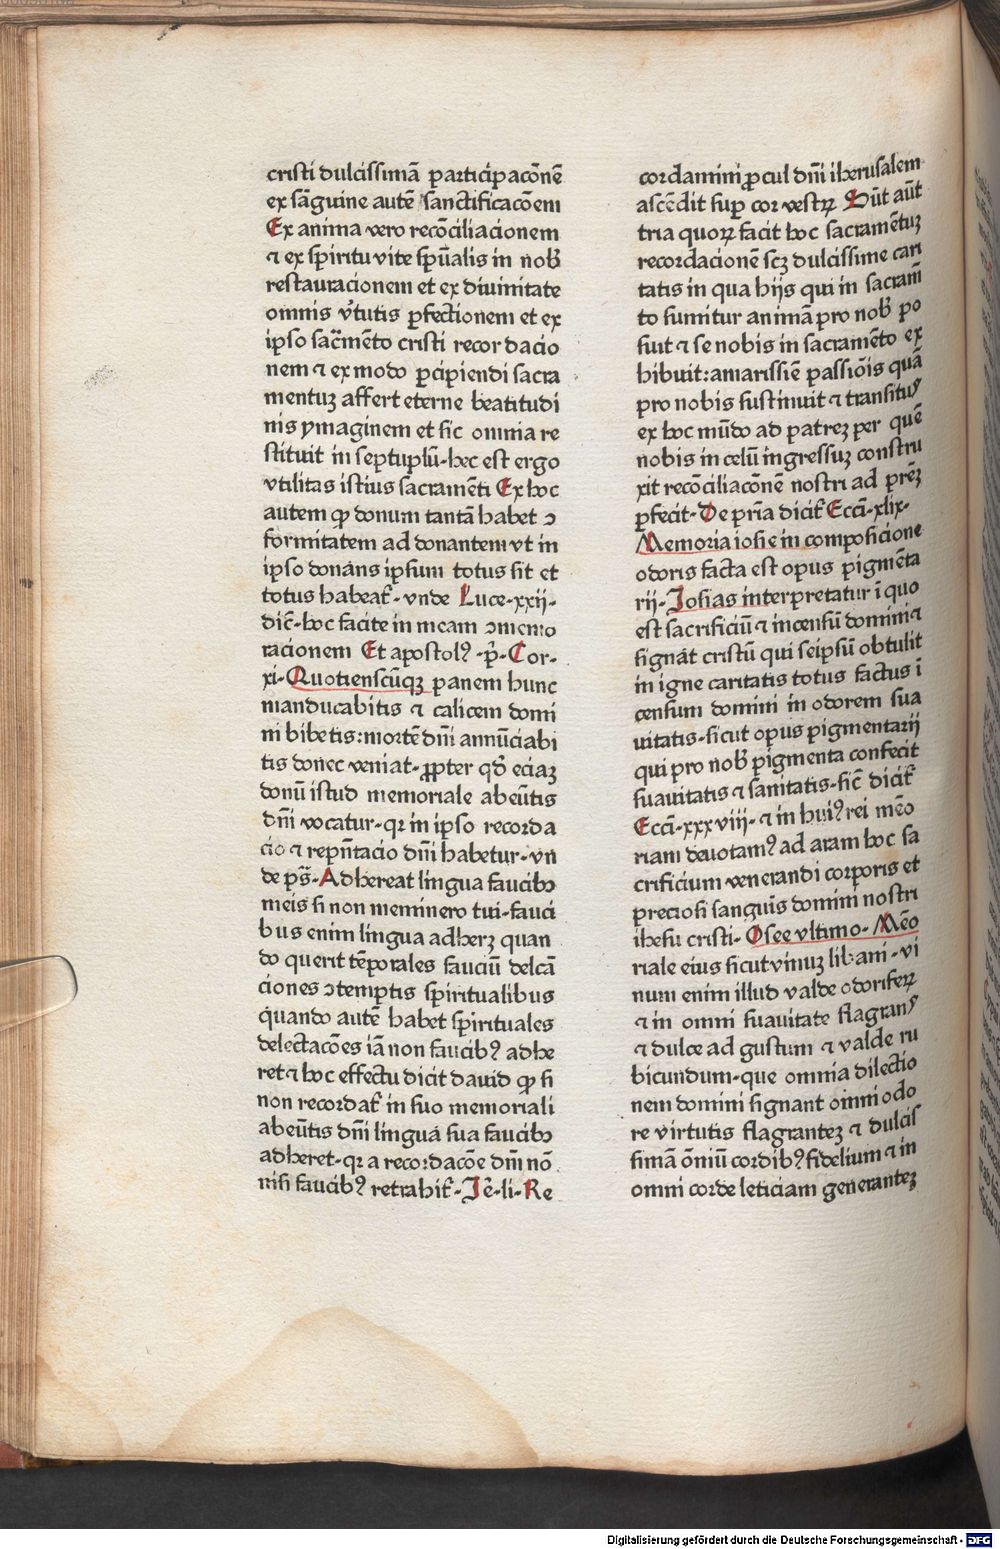 cristi dulcissimā participacōnē
ex sāguine autē sanctificacōem
Ex anima vero recōciliacionem
⁊ ex spiritu vite spūalis in nob̄
restauracionem et ex diuinitate
omnis v̄tutis ꝑfectionem et ex
ipso sac̄mēto cristi recordacio
nem ⁊ ex modo ꝑcipiendi sacra
mentuꝫ affert eterne beatitudi
nis ymaginem et sic omnia re
stituit in septuplū·hec est ergo
vtilitas istius sacramēti Ex hoc
autem ꝙ donum tantā habet ↄ
formitatem ad donantem vt in
ipso donāns ipsum totus sit et
totus habeat̄·vnde Luce·xxii·
dic̄·hoc facite in meam ↄmemo
racionem Et apostolꝰ·p̄·Cor·
xi·Quotienscūqꝫ panem hunc
manducabitis ⁊ calicem domi
ni bibetis:mortē dn̄i annūciabi
tis donec veniat·ꝓpter qd̄ eciaꝫ
donū istud memoriale abeūtis
dn̄i vocatur·qꝛ in ipso recorda
cio ⁊ repn̄tacio dn̄i habetur·vn
de ps̄·Adhereat lingua faucibꝫ
meis si non meminero tui·fauci
bus enim lingua adherꝫ quan
do querit tēporales fauciū delcā
ciones ↄtemptis spiritualibus
quando autē habet spirituales
delectacōes iā non faucibꝰ adhe
ret ⁊ hoc effectu dicit dauid ꝙ si
non recordat̄ in suo memoriali
abeūtis dn̄i linguā sua faucibꝫ
adheret·qꝛ a recordacōe dn̄i nō
nisi faucibꝰ retrahit̄·Jē·li·Re
cordamini ꝓcul dn̄i iherusalem
ascēdit suꝑ cor vestrꝝ Sūt aūt
tria quoꝝ facit hoc sacramētuꝫ
recordacionē scꝫ dulcissime cari
tatis in qua hijs qui in sacram̄
to sumitur animā pro nob̄ po
suit ⁊ se nobis in sacramēto ex
hibuit:amarissiē passiōis quā
pro nobis sustinuit ⁊ transitꝰ
ex hoc mūdo ad patreꝫ per quē
nobis in celū ingressuꝫ constru
xit recōciliacōnē nostri ad prēꝫ
ꝑfecit·De pr̄ia dicit̄ Eccī·xlix·
Memoria iosie in composicione
odoris facta est opus pigmēta
rii·Josias interpretatur ī quo
est sacrificiū ⁊ incensū domini ⁊
signāt cristū qui seipsū obtulit
in igne caritatis totus factus ī
censum domini in odorem sua
uitatis·sicut opus pigmentarij
qui pro nob̄ pigmenta confecit
suauitatis ⁊ sanitatis·sic̄ dicit̄
Eccī·xxxviii·⁊ in huiꝰ rei mēo
riam deuotamꝰ ad aram hoc sa
crificium venerandi corporis et
preciosi sanguīs domini nostri
ihesu cristi·Osee vltimo·Mēo
riale eius sicut vinuꝫ libani·vi
num enim illud valde odoriferꝝ
⁊ in omni suauitate flagranꝰ
⁊ dulce ad gustum ⁊ valde ru
bicundum·que omnia dilectio
nem domini signant omni odo
re virtutis flagranteꝫ ⁊ dulcis
simā ōniū cordibꝰ fidelium ⁊ in
omni corde leticiam generanteꝫ
Digitalisierung gefördert durch die Deutsche Forschungsgemeinschaft · DFG